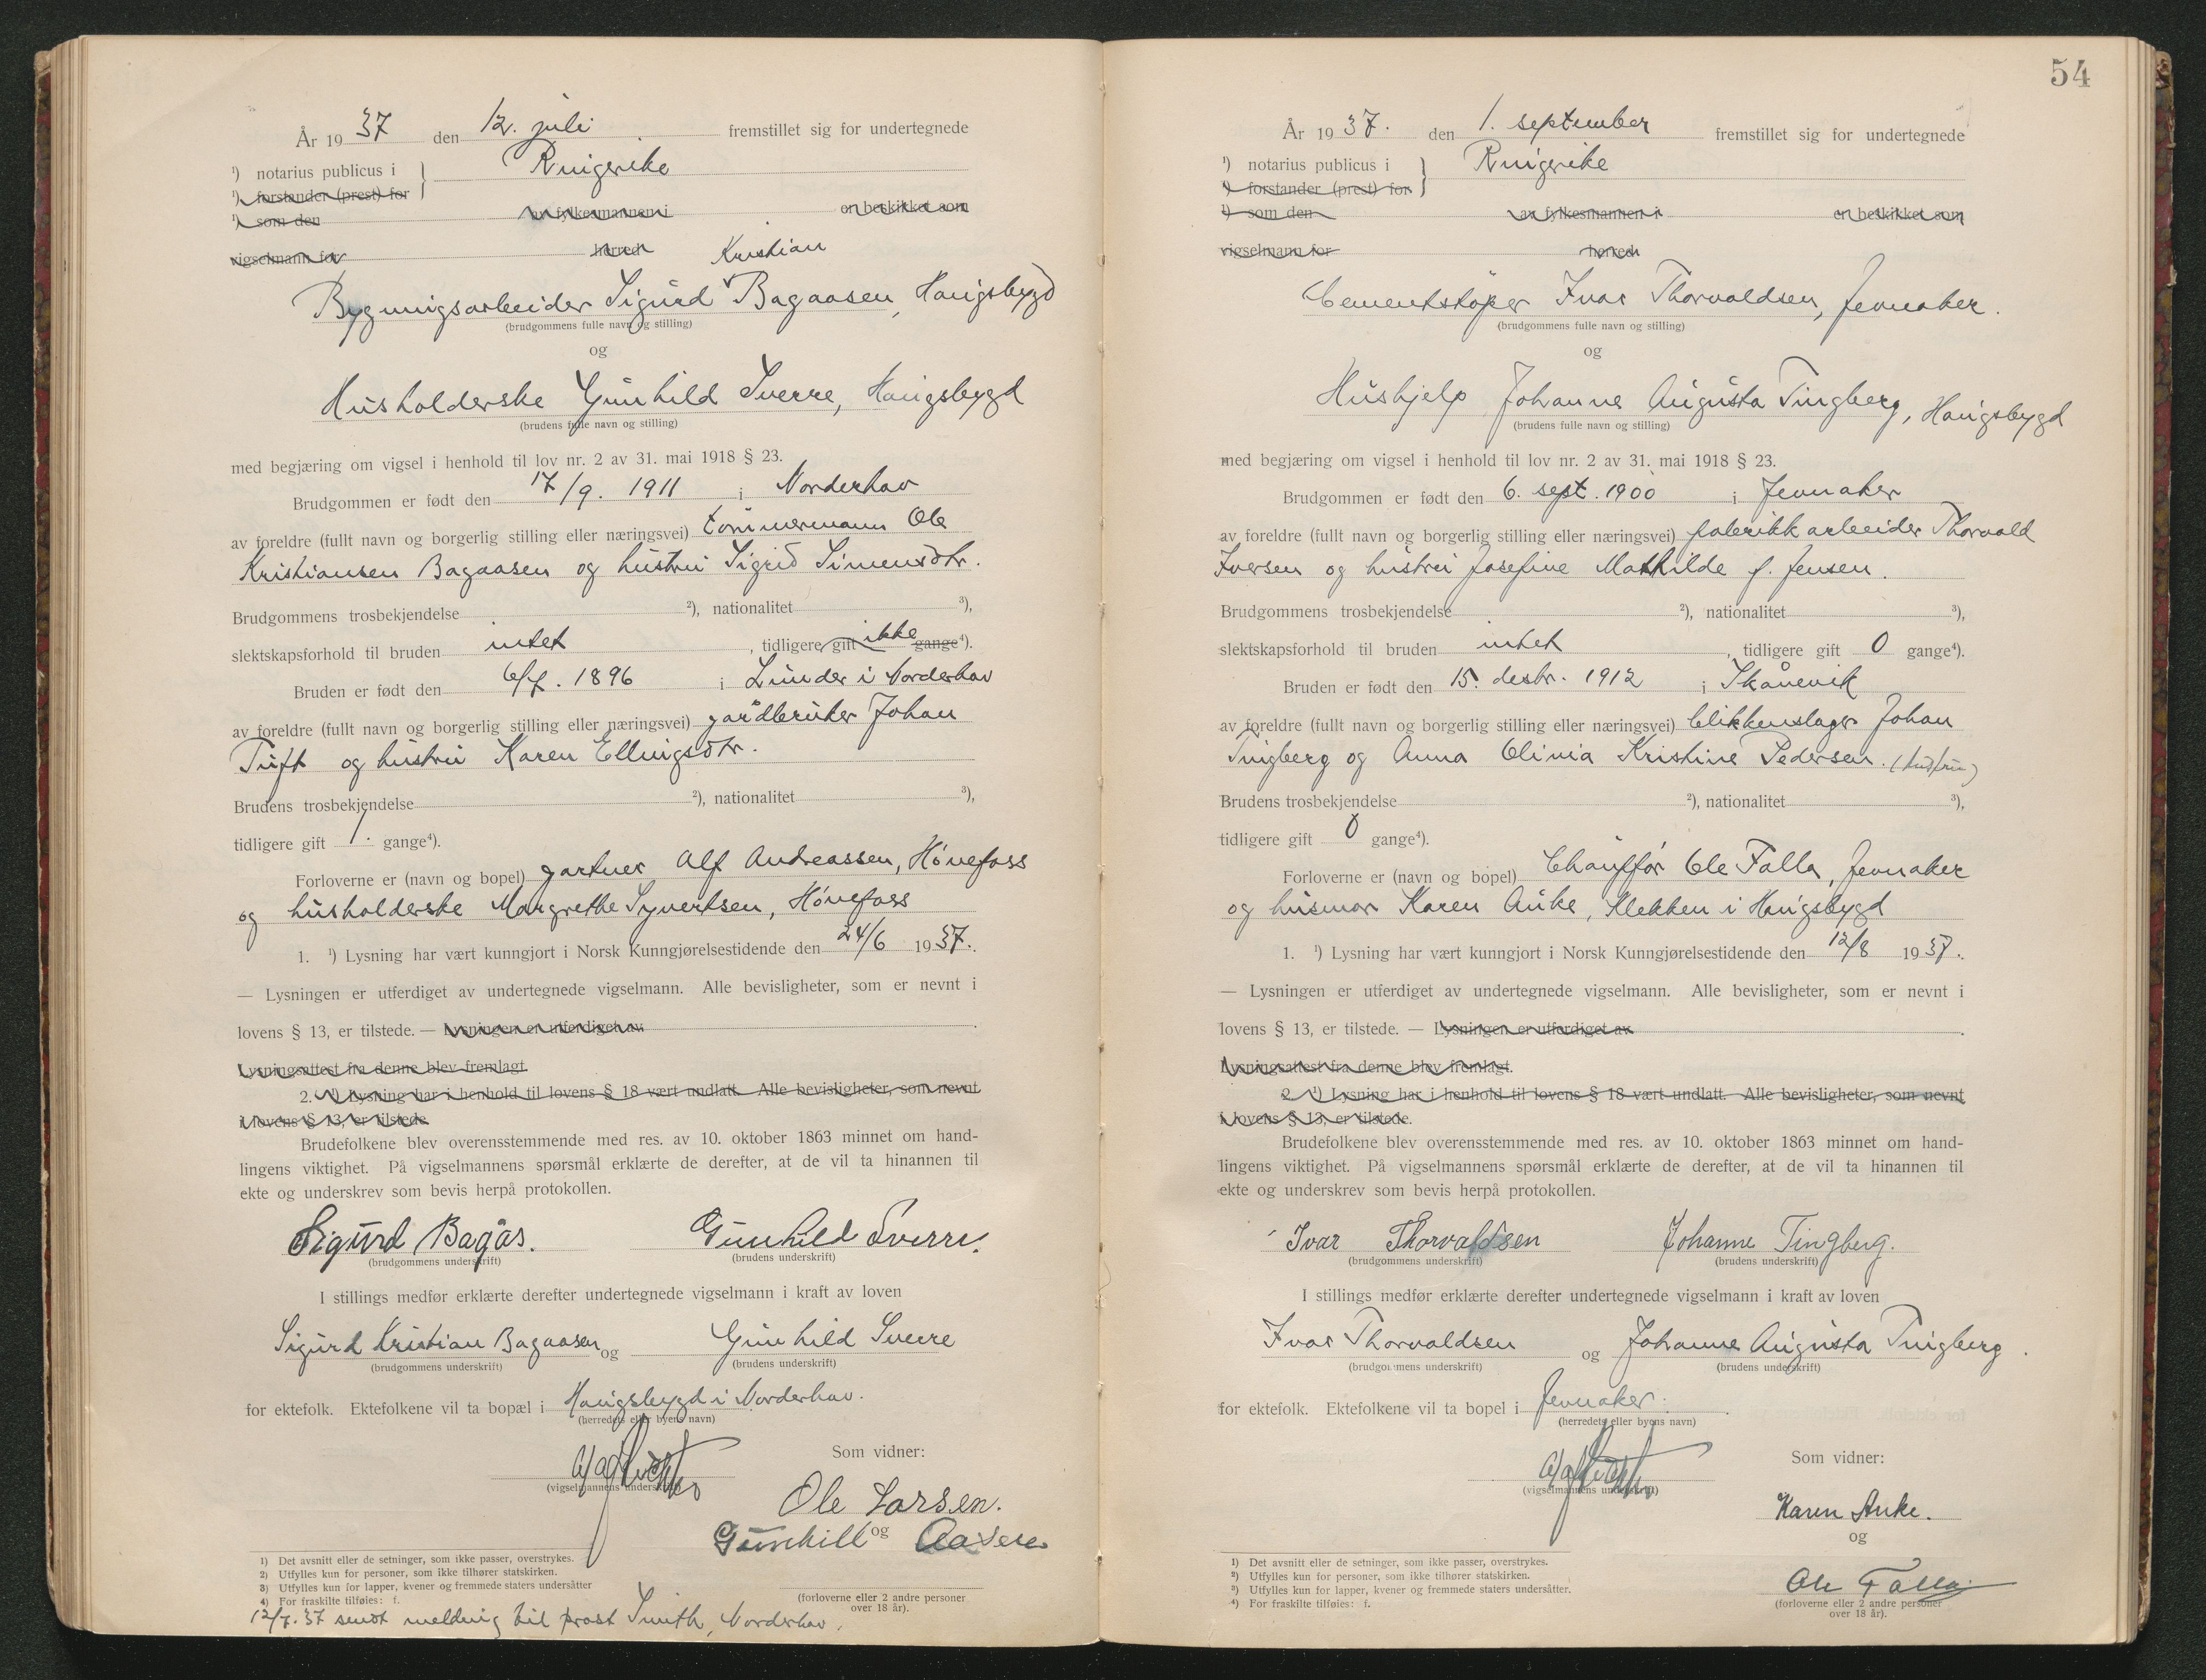 År 1937 den 12. juli fremstillet sig for undertegnede
¹) notarius publicus i } Ringerike
¹) forstander (prest) for
¹) som den av fylkesmannen i en beskikket som
vigselmann for herred
Kristian
Bygningsarbeider Sigurd Bagaasen, Haugsbygd
(brudgommens fulle navn og stilling)
og
Husholderske Gunhild Sverre, Haugsbygd
(brudens fulle navn og stilling)
med begjæring om vigsel i henhold til lov nr. 2 av 31. mai 1918 § 23.
Brudgommen er født den 17/9. 1911 i Norderhov
av foreldre (fullt navn og borgerlig stilling eller næringsvei) tømmermann Ole
Kristiansen Bagaasen og hustru Sigrid Simensdtr.
Brudgommens trosbekjendelse ²), nationalitet ³),
slektskapsforhold til bruden intet, tidligere gift ikke gange⁴).
Bruden er født den 6/7. 1896 i Lunder i Norderhov
av foreldre (fullt navn og borgerlig stilling eller næringsvei) gårdbruker Johan
Tuft og hustru Karen Ellingsdtr.
Brudens trosbekjendelse ²), nationalitet ³),
tidligere gift 1. gange⁴).
Forloverne er (navn og bopel) gartner Alf Andreassen, Hønefoss
og husholderske Margrethe Syvertsen, Hønefoss
1. ¹) Lysning har vært kunngjort i Norsk Kunngjørelsestidende den 24/6 1937.
— Lysningen er utferdiget av undertegnede vigselmann. Alle bevisligheter, som er nevnt i
lovens § 13, er tilstede. — Lysningen er utferdiget av
Lysningsattest fra denne blev fremlagt.
2. ¹) Lysning har i henhold til lovens § 18 vært undlatt. Alle bevisligheter, som nevnt
i lovens § 13, er tilstede.
Brudefolkene blev overensstemmende med res. av 10. oktober 1863 minnet om hand-
lingens viktighet. På vigselmannens spørsmål erklærte de derefter, at de vil ta hinannen til
ekte og underskrev som bevis herpå protokollen.
Sigurd Bagås. Gunhild Sverre.
(brudgommens underskrift) (brudens underskrift)
I stillings medfør erklærte derefter undertegnede vigselmann i kraft av loven
Sigurd Kristian Bagaasen og Gunhild Sverre
(brudgommens underskrift) (brudens underskrift)
for ektefolk. Ektefolkene vil ta bopæl i Haugsbygd i Norderhov.
(herredets eller byens navn)
Som vidner:
(vigselmannens underskrift)
Ole Larsen.
og
Gunhild Aasen
(forloverne eller 2 andre personer
over 18 år).
1) Det avsnitt eller de setninger, som ikke passer, overstrykes.
2) Utfylles kun for personer, som ikke tilhører statskirken.
3) Utfylles kun for lapper, kvener og fremmede staters undersåtter
4) For fraskilte tilføies: f.
12/7.37 sendt melding til prost Smith, Norderhov.
54
År 1937. den 1. september fremstillet sig for undertegnede
¹) notarius publicus i } Ringerike
¹) forstander (prest) for
¹) som den av fylkesmannen i en beskikket som
vigselmann for herred
Cementstøper Ivar Thorvaldsen, Jevnaker.
(brudgommens fulle navn og stilling)
og
Hushjelp Johanne Augusta Tingberg, Haugsbygd
(brudens fulle navn og stilling)
med begjæring om vigsel i henhold til lov nr. 2 av 31. mai 1918 § 23.
Brudgommen er født den 6. sept. 1900 i Jevnaker
av foreldre (fullt navn og borgerlig stilling eller næringsvei) fabrikkarbeider Thorvald
Iversen og hustru Josefine Mathilde f. Jensen.
Brudgommens trosbekjendelse ²), nationalitet ³),
slektskapsforhold til bruden intet, tidligere gift 0 gange⁴).
Bruden er født den 15. desbr. 1912 i Skånevik
av foreldre (fullt navn og borgerlig stilling eller næringsvei) blikkenslager Johan
Tingberg og Anna Olivia Kristine Pedersen. (hustru)
Brudens trosbekjendelse ²), nationalitet ³),
tidligere gift 0 gange⁴).
Forloverne er (navn og bopel) Chauffør Ole Falla, Jevnaker
og husmor Karen Anke, Klekken i Haugsbygd
1. ¹) Lysning har vært kunngjort i Norsk Kunngjørelsestidende den 12/8 1937.
— Lysningen er utferdiget av undertegnede vigselmann. Alle bevisligheter, som er nevnt i
lovens § 13, er tilstede. — Lysningen er utferdiget av
Lysningsattest fra denne blev fremlagt.
2. ¹) Lysning har i henhold til lovens § 18 vært undlatt. Alle bevisligheter, som nevnt
i lovens § 13, er tilstede.
Brudefolkene blev overensstemmende med res. av 10. oktober 1863 minnet om hand-
lingens viktighet. På vigselmannens spørsmål erklærte de derefter, at de vil ta hinannen til
ekte og underskrev som bevis herpå protokollen.
Ivar Thorvaldsen Johanne Tingberg.
(brudgommens underskrift) (brudens underskrift)
I stillings medfør erklærte derefter undertegnede vigselmann i kraft av loven
Ivar Thorvaldsen og Johanne Augusta Tingberg.
(brudgommens underskrift) (brudens underskrift)
for ektefolk. Ektefolkene vil ta bopel i Jevnaker.
(herredets eller byens navn)
Som vidner:
(vigselmannens underskrift)
Karen Anke.
og
Ole Falla
(forloverne eller 2 andre personer
over 18 år).
1) Det avsnitt eller de setninger, som ikke passer, overstrykes.
2) Utfylles kun for personer, som ikke tilhører statskirken.
3) Utfylles kun for lapper, kvener og fremmede staters undersåtter.
4) For fraskilte tilføies: f.